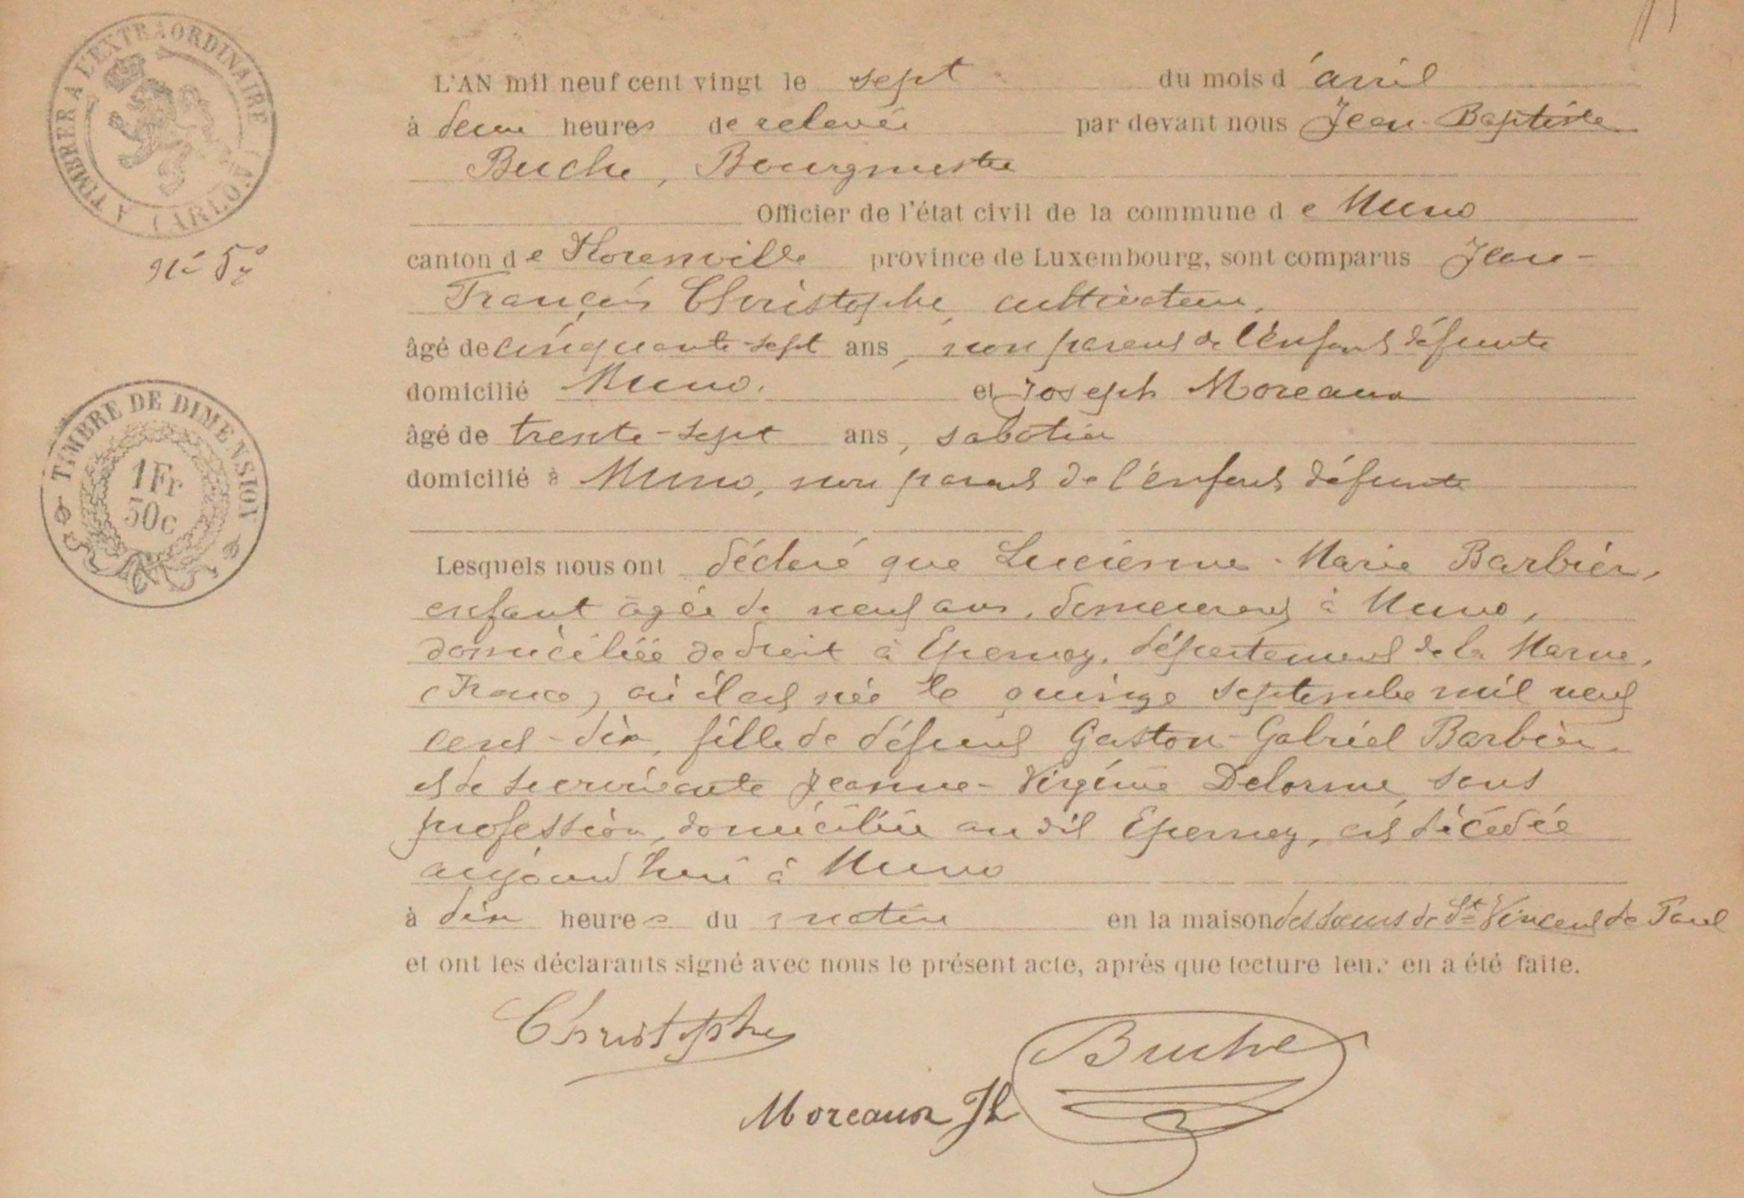 A TIMBRER A L'EXTRAORDINAIRE (ARLON)
L'AN mil neuf cent vingt le sept du mois d'avril
à deux heures de relevée par devant nous Jean-Baptiste
Buche, Bourgmestre
Officier de l'état civil de la commune de Muno
canton de Florenville province de Luxembourg, sont comparus Jean-
François Christophe, cultivateur,
âgé de cinquante-sept ans, non parent de l'enfant défunte
domicilié Muno. et Joseph Moreaux
âgé de trente-sept ans, sabotier
domicilié à Muno, non parent de l'enfant défunte
TIMBRE DE DIMENSION
1Fr
50c
Lesquels nous ont déclaré que Lucienne-Marie Barbier,
enfant âgée de neuf ans, demeurant à Muno,
domiciliée de droit à Epernay, département de la Marne,
(France) où il est née le quinze septembre mil neuf
cent-dix, fille de défunt Gaston-Gabriel Barbier
et de survivante Jeanne-Virginie Delorme, sans
profession, domiciliée au dit Epernay, est décédée
aujourd'hui à Muno
à dix heures du matin en la maison des soeurs de St Vincent de Paul
et ont les déclarants signé avec nous le présent acte, après que lecture leur en a été faite.
Christophe
Buche
Moreaux Jh